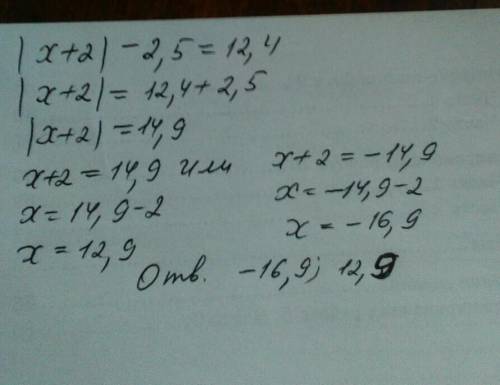 |x+2| -2,5 = 12,4
|x+2| = 12,4 + 2,5
|x+2| = 14,9
x+2 = 14,9 или x+2 = -14,9
x = 14,9 - 2 x = -14,9 - 2
x = 12,9 x = -16,9
Отв. -16,9; 12,9